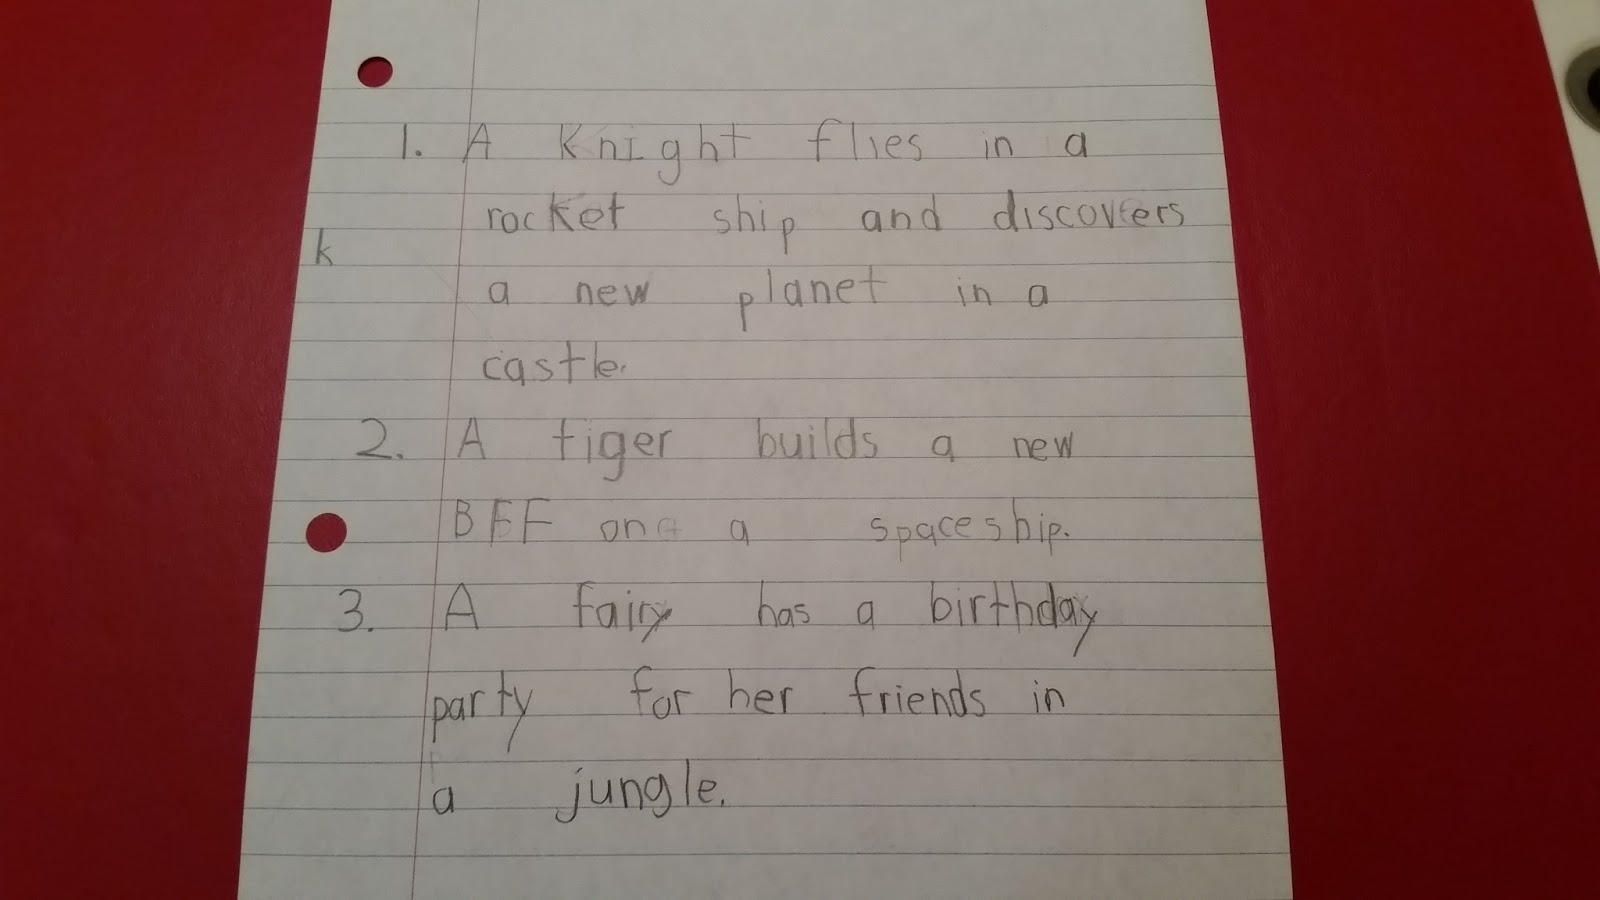 1. A Knight flies in a
rocket ship and discovers
k
a new planet in a
castle.
2. A tiger builds a new
BFF on a spaceship.
3. A fairy has a birthday
party for her friends in
a jungle.